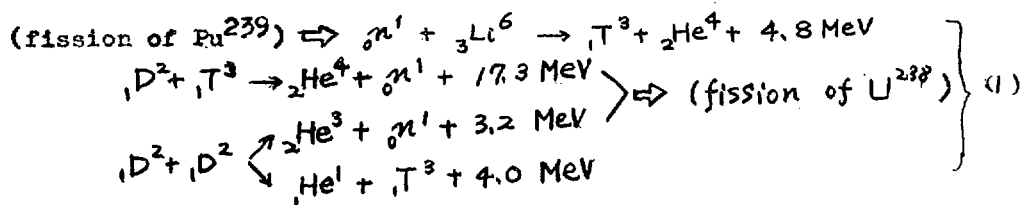 (fission of Pu²³⁹) ⇨ ₀n¹ + ₃Li⁶ → ₁T³ + ₂He⁴ + 4.8 MeV
₁D² + ₁T³ → ₂He⁴ + ₀n¹ + 17.3 MeV ⇨ (fission of U²³⁸) } (1)
₁D² + ₁D² ↗ ₂He³ + ₀n¹ + 3.2 MeV
↘ ₁He¹ + ₁T³ + 4.0 MeV